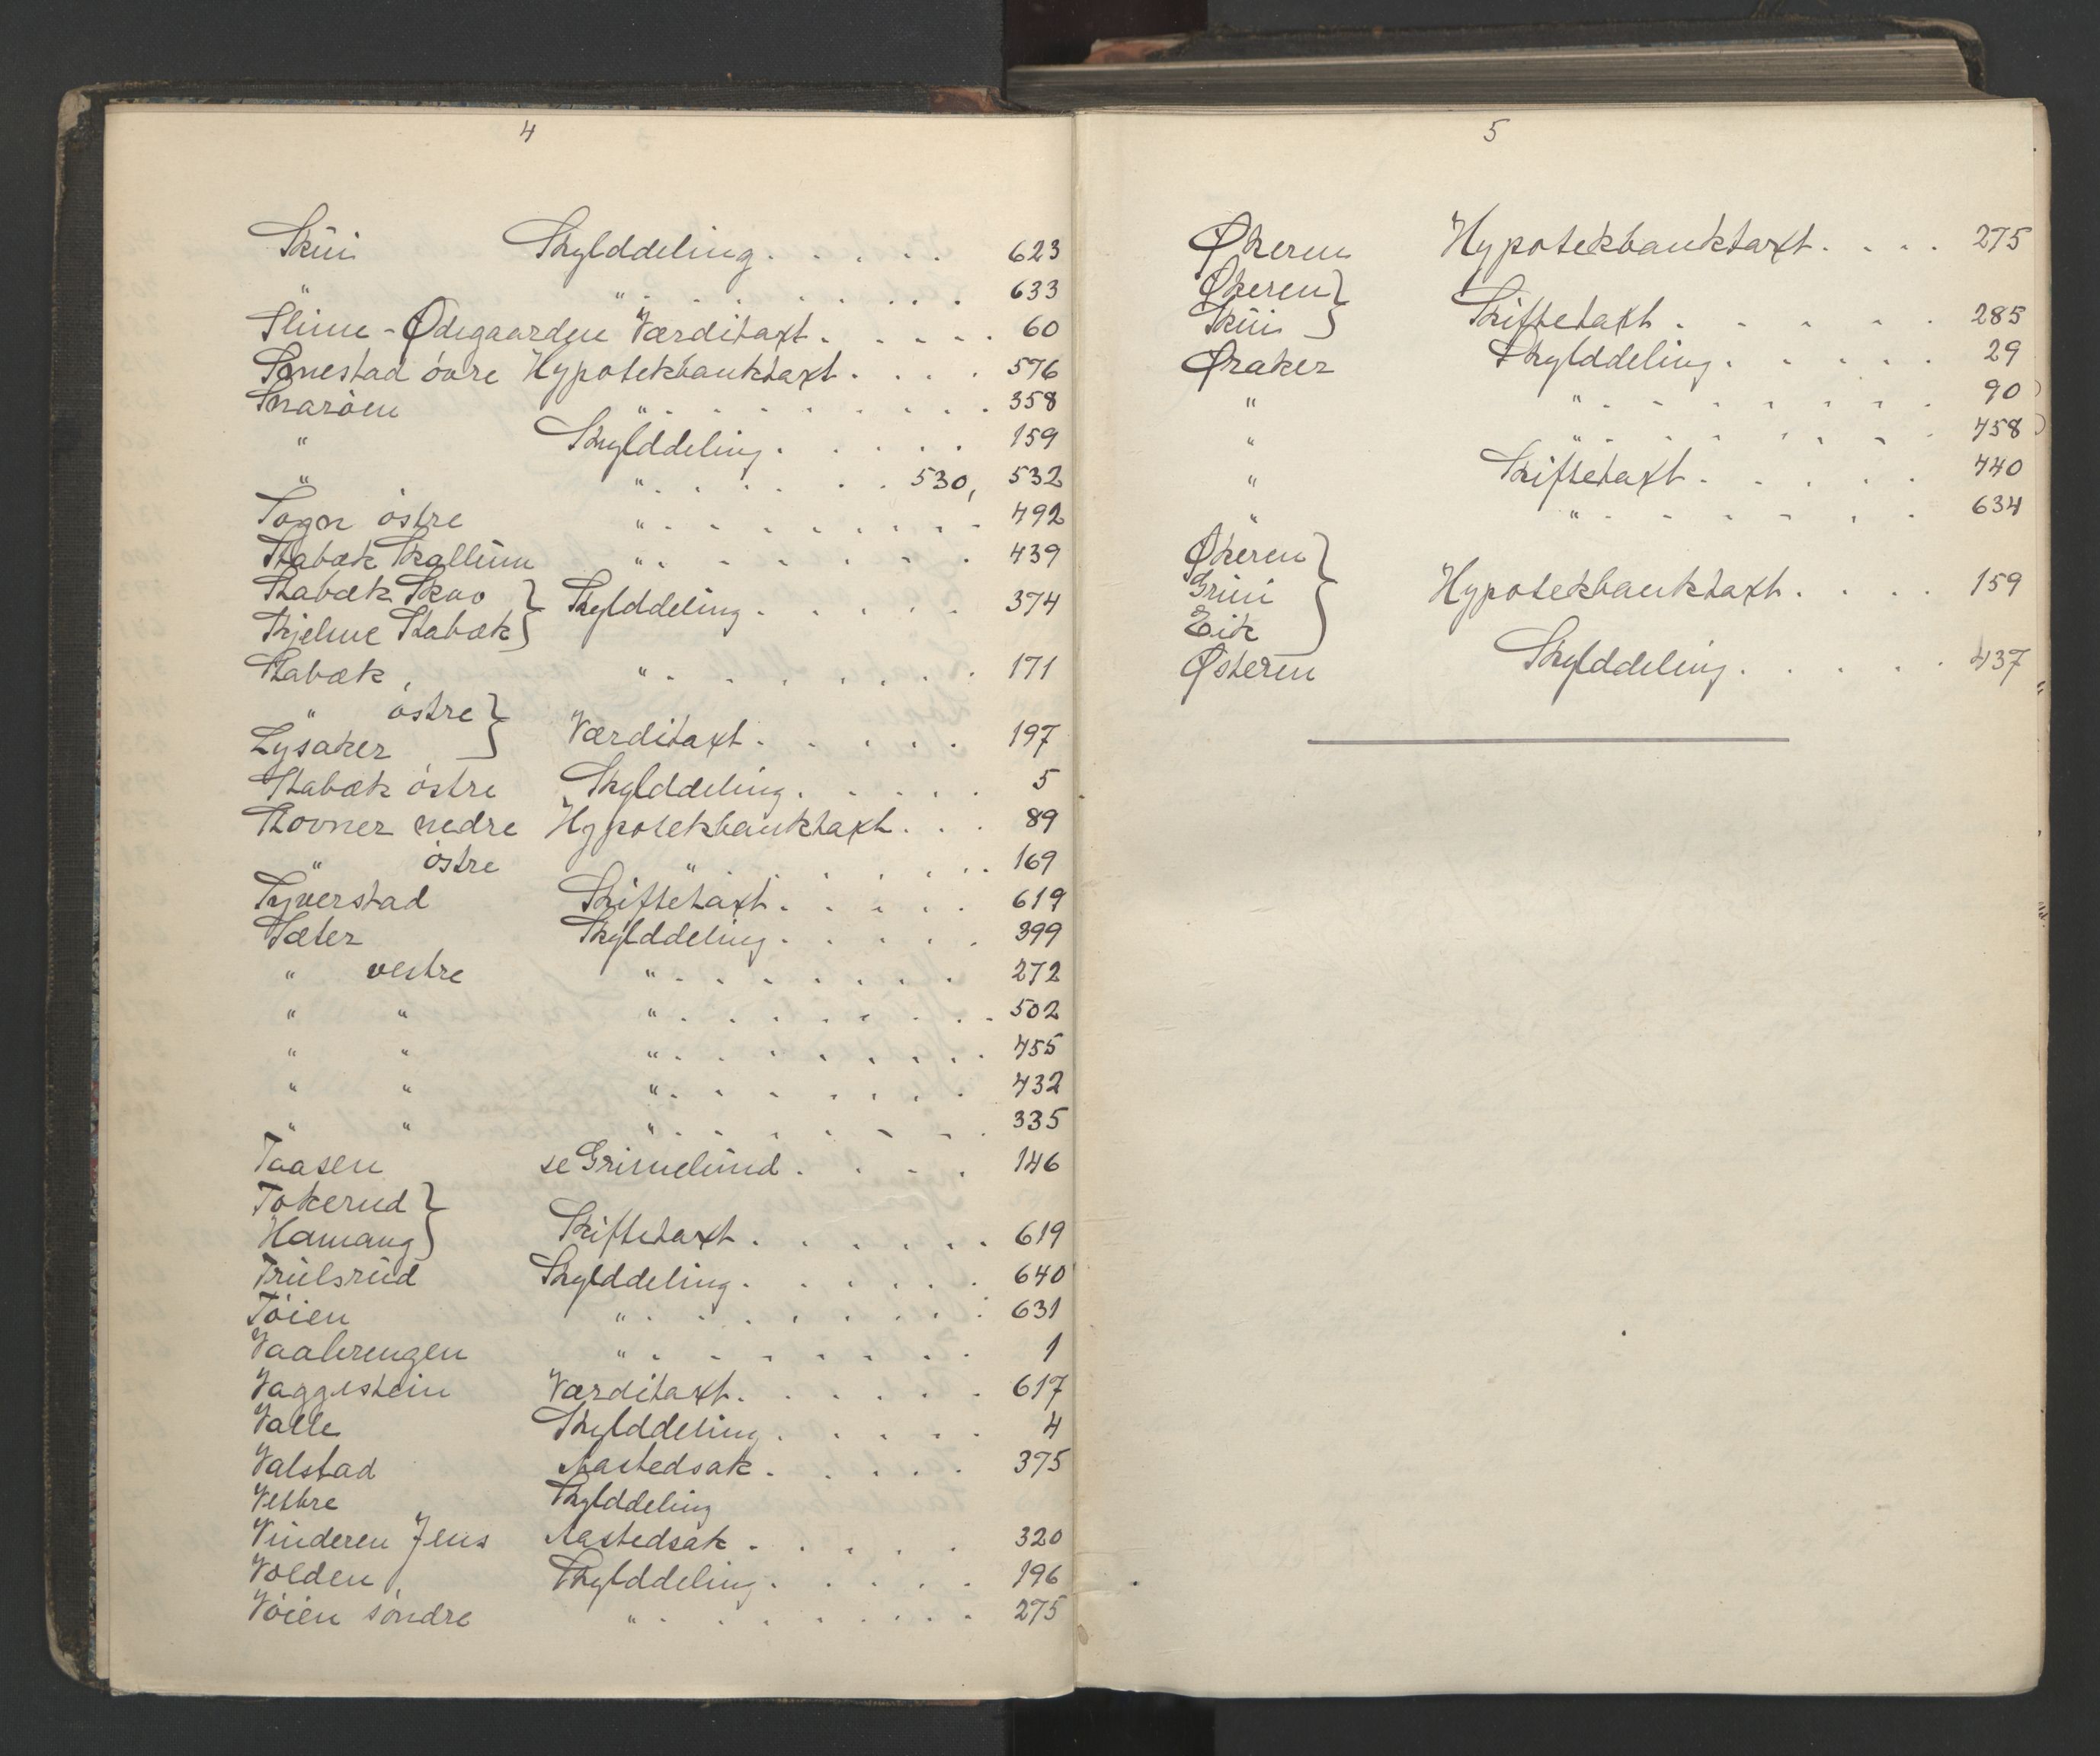 4
Skui Skylddeling . . . . . 623
" " . . . . . . . . . 633
Slime-Ødegaarden Værditaxt . . . . . 60
Sonestad övre Hypotekbanktaxt . . . . 576
Snaröen " . . . . . . . . . 358
" Skylddeling . . . . . 159
" " . . . . . . 530, 532
Sogn östre " . . . . . . . . . 492
Stabæk Skallum " . . . . . . . 439
Stabæk Skao } Skylddeling . . . . . 374
Skjelme Stabæk }
Stabæk " . . . . . . . . 171
" östre }
Lysaker } Værditaxt . . . . . 197
Stabæk östre Skylddeling . . . . . 5
Stovner nedre Hypotekbanktaxt . . . 89
" östre " . . . . . . 169
Syverstad Skiftetaxt . . . . . 619
Sæter Skylddeling . . . . . 399
" vestre " . . . . . . . 272
" " " . . . . . . . . . 502
" " " . . . . . . . . . 455
" " " . . . . . . . 432
" " " . . . . . . . . 335
Taasen se Grimelund . . . . 146
Tokerud }
Hamang } Skiftetaxt . . . . . . . 619
Trulsrud Skylddeling . . . . . . 640
Töien " . . . . . . . . 631
Vaalerengen " . . . . . . . 1
Vaggestein Værditaxt . . . . . . 617
Valle Skylddeling . . . . . 4
Valstad Aastedsak . . . . . 375
Vestre Skylddeling
Vinderen Jens Aastedsak . . . . . 320
Volden Skylddeling . . . . . 196
Vöien söndre " . . . . . . . . 275
5
Økeren Hypotekbanktaxt . . . . 275
Økeren }
Skui } Skiftetaxt . . . . . 285
Øraker Skylddeling . . . . . 29
" " . . . . . . . . 90
" " . . . . . . . . 458
" Skiftetaxt . . . . . 440
" " . . . . . . 634
Økeren }
Grini } Hypotekbanktaxt . . . . 159
Eik }
Østeren Skylddeling . . . . . 437